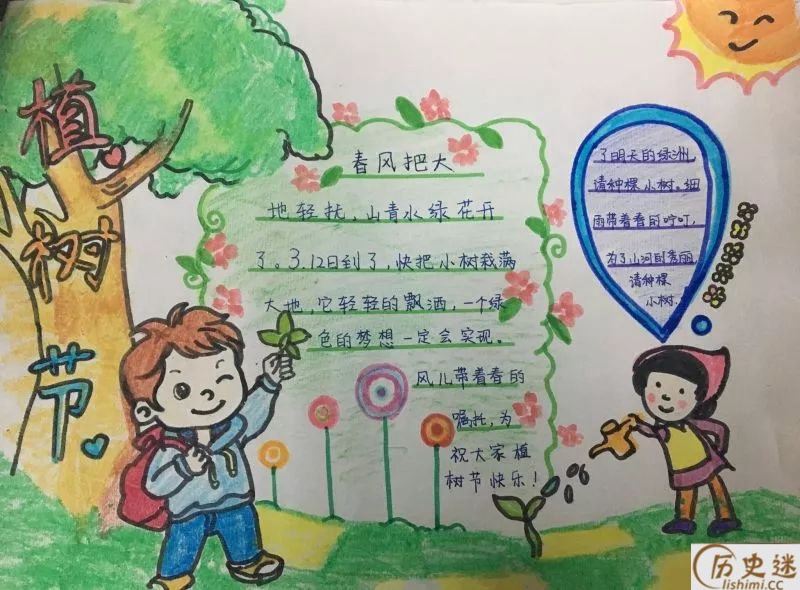 植
树
节
春风把大
地轻抚，山青水绿花开
了。3.12日到了，快把小树栽满
大地，它轻轻的飘洒，一个绿
色的梦想一定会实现。
风儿带着春的
嘱托，为
祝大家植
树节快乐！
了明天的绿洲
请种棵小树。细
雨带着春的叮咛，
为了山河的秀丽
请种棵
小树.
历史迷
lishimi.cc